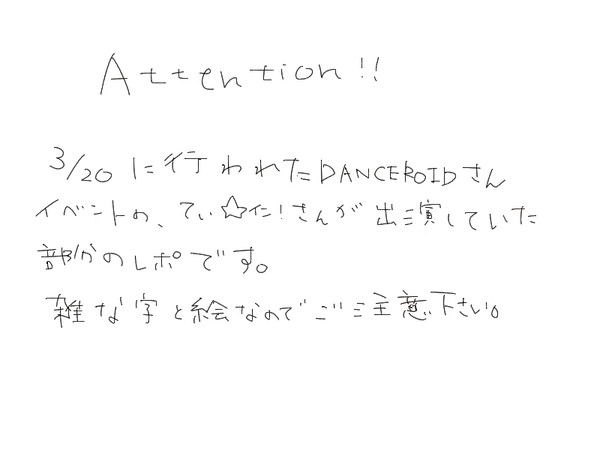 Attention!!
3/20に行われたDANCEROIDさん
イベントの、てぃ☆イン!さんが出演していた
部分のレポです。
雑な字と絵なのでご注意下さい。